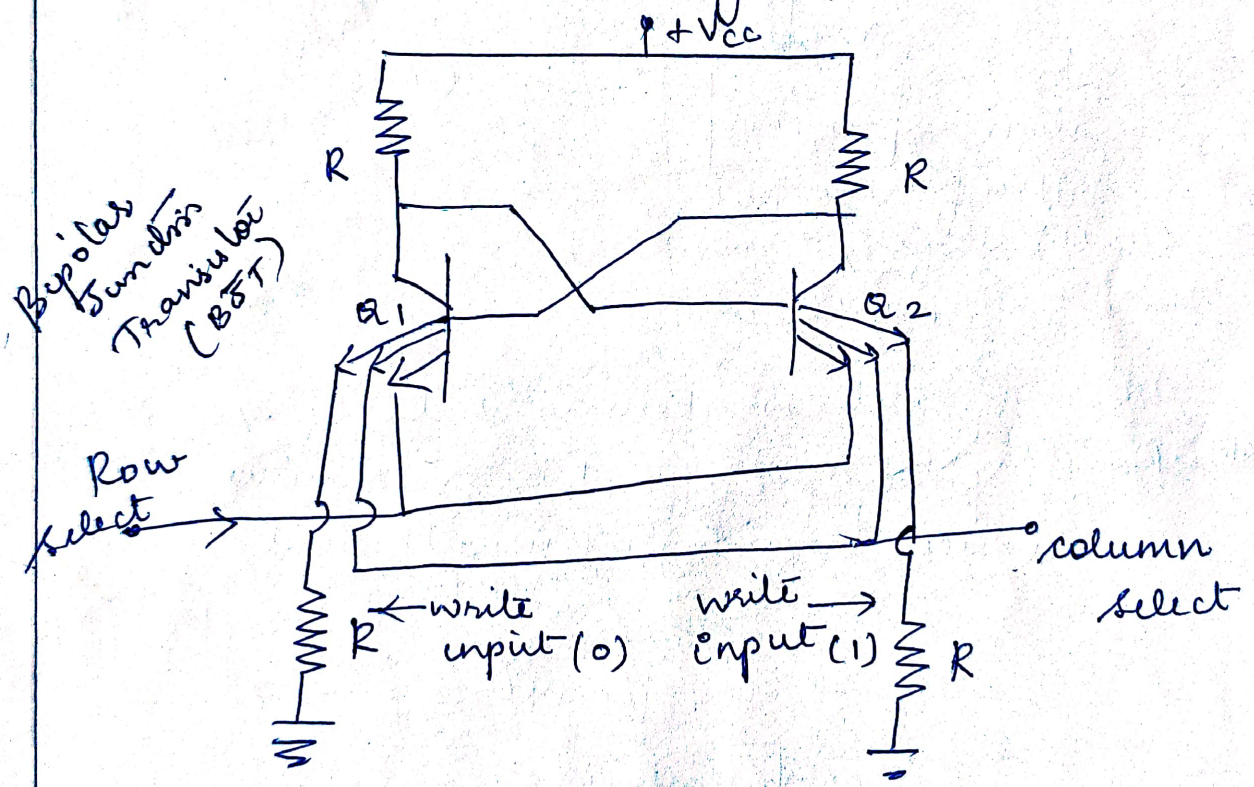 +Vcc
R
R
Bipolar
Junction
Transistor
(BJT)
Q1
Q2
Row
select
column
select
write
input (0)
write
input (1)
R
R